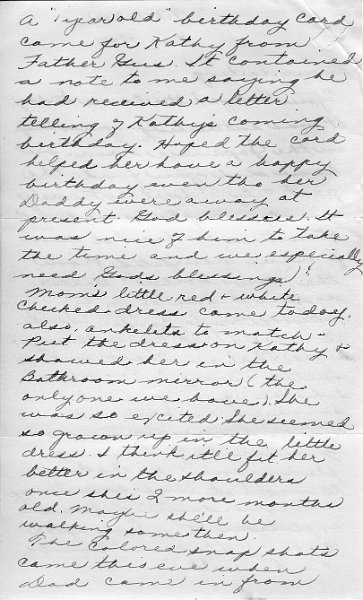 A "1 year old" birthday card
came for Kathy from
Father Gus. It contained
a note to me saying he
had received a letter
telling of Kathy's coming
birthday. Hoped the card
helped her have a happy
birthday even tho her
Daddy were away at
present. God bless . It
was nice of him to take
the time and we especially
need Gods blessings!
Mom's little red + white
checked dress came today.
also, anklets to match -
Put the dress on Kathy +
showed her in the
Bathroom mirror (the
only one we have). She
was so excited. She seemed
so grown up in the little
dress. I think it'll fit her
better in the shoulders
once she's 2 more months
old. Maybe she'll be
walking some then.
The Colored snap shots
came this eve when
Dad came in from